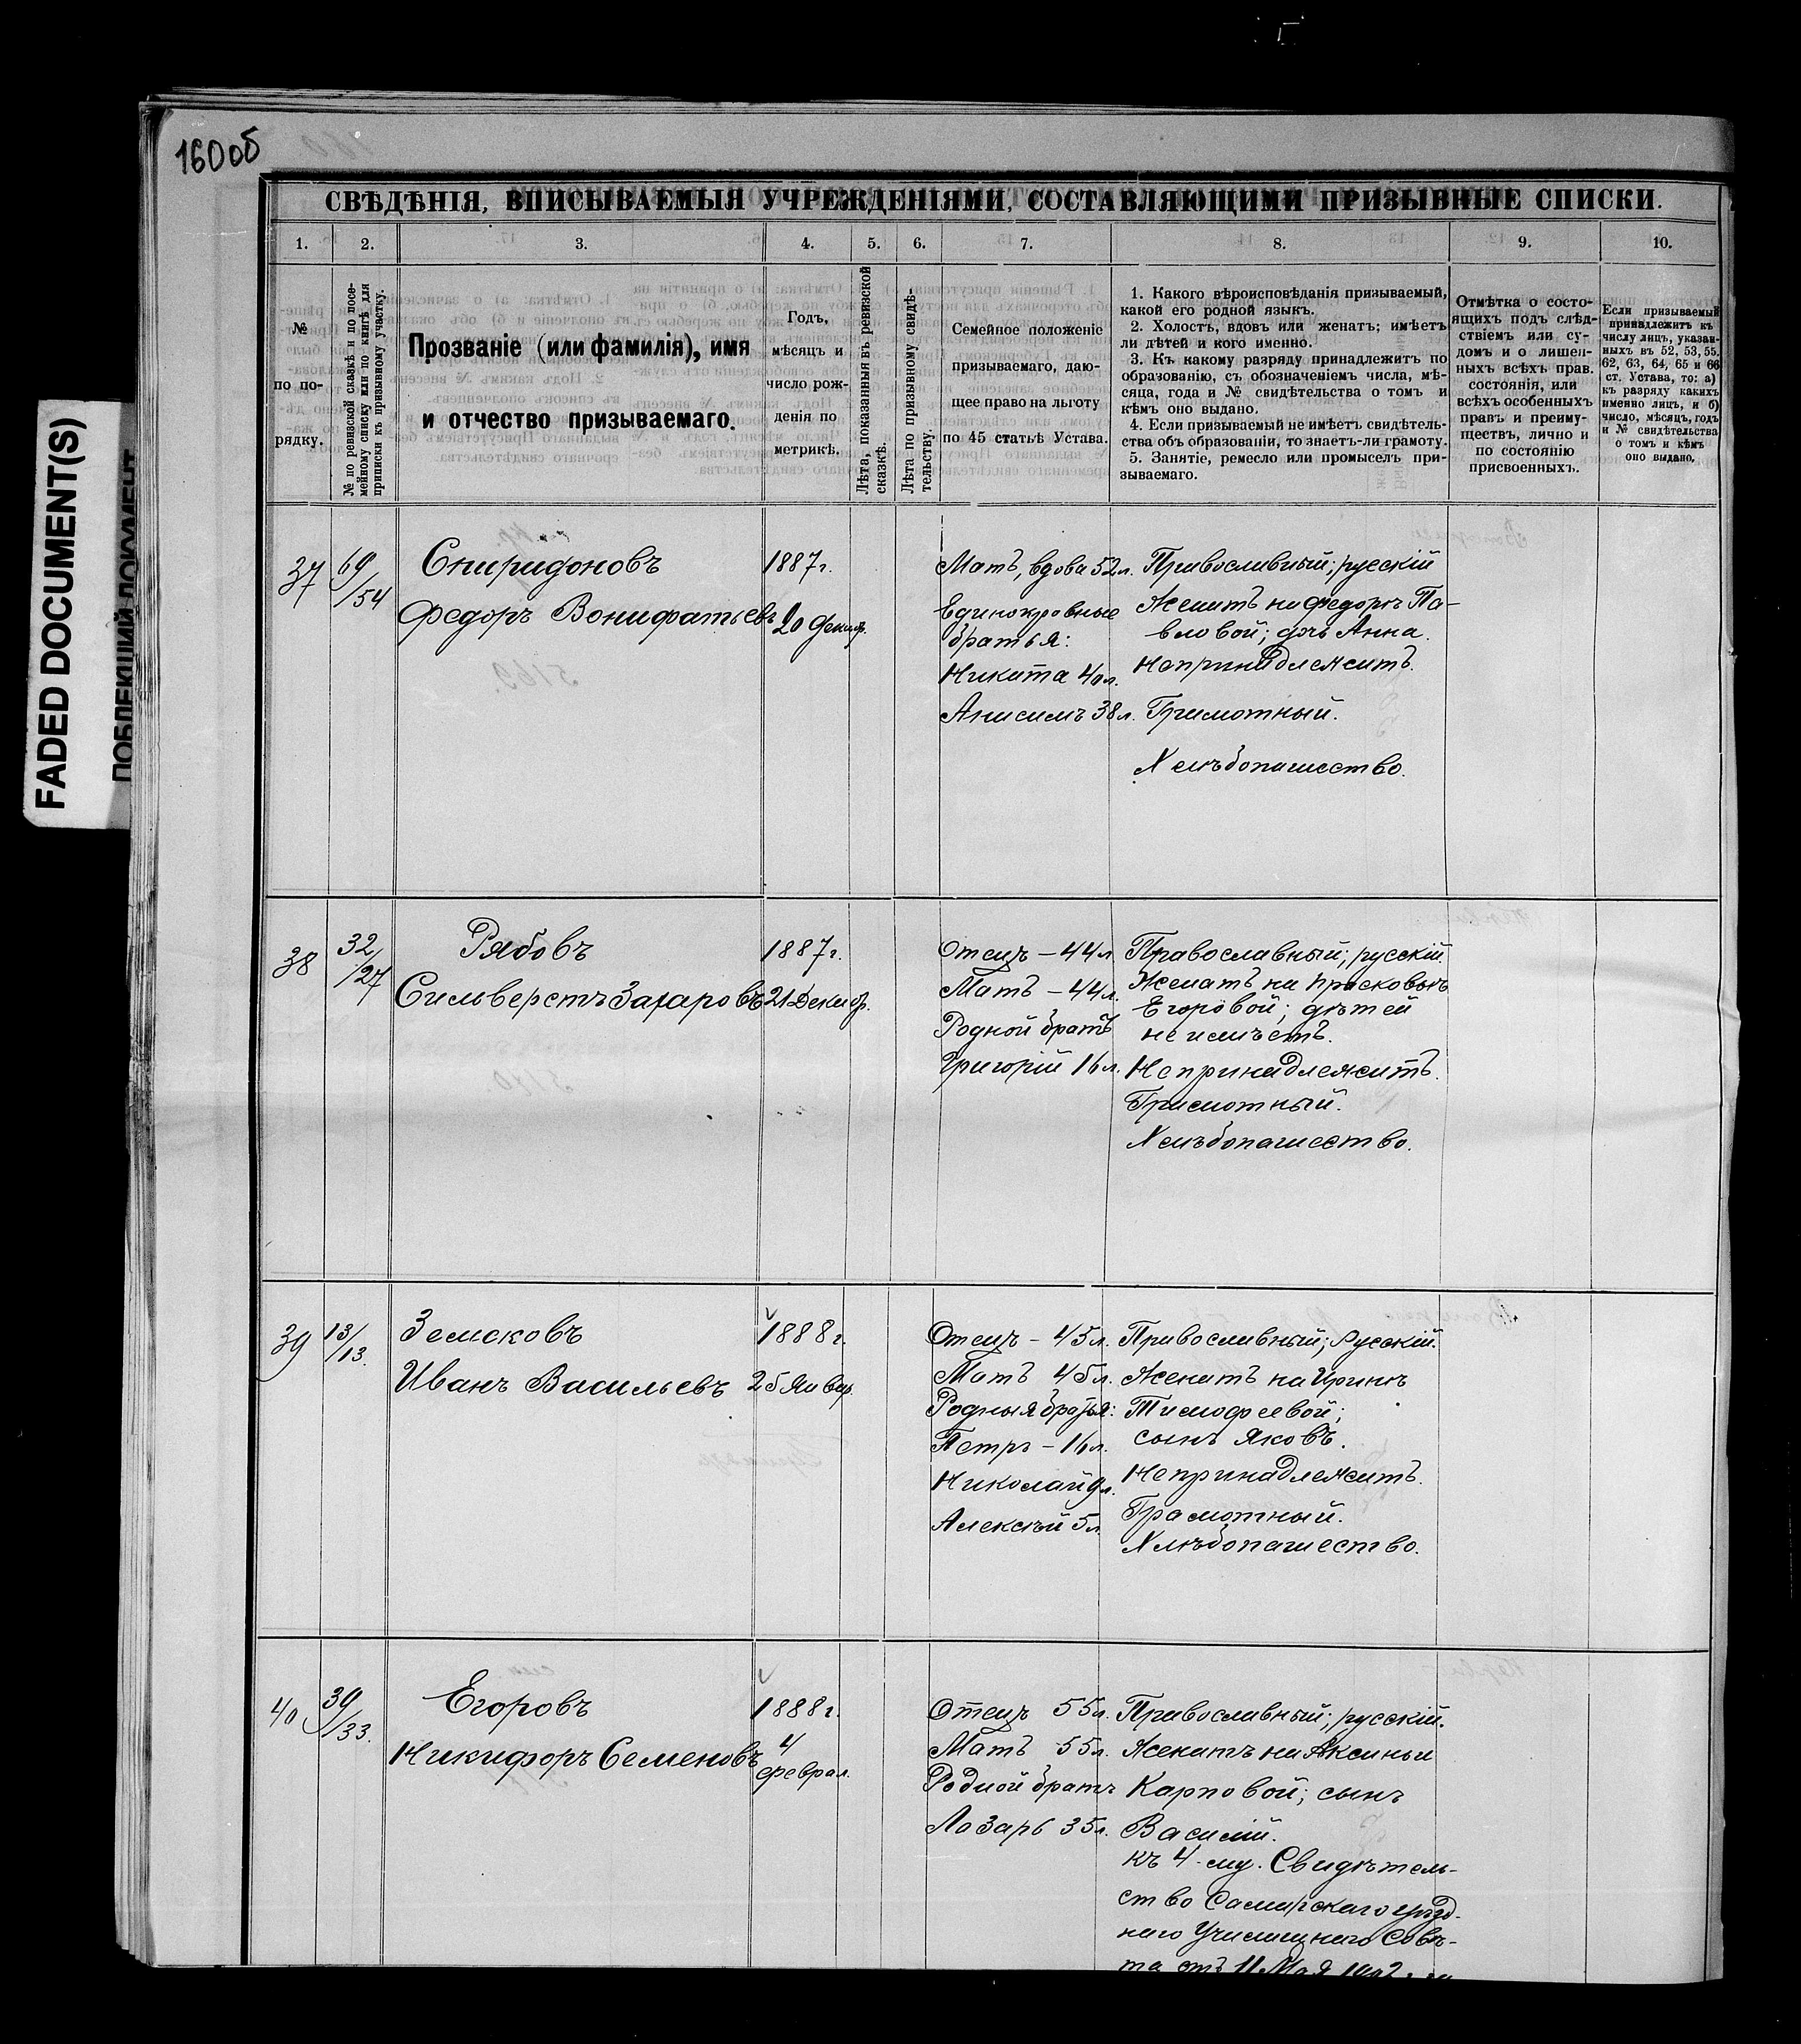 160об
FADED DOCUMENT(S)
СВѢДѢНІЯ, ВПИСЫВАЕМЫЯ УЧРЕЖДЕНІЯМИ, СОСТАВЛЯЮЩИМИ ПРИЗЫВНЫЕ СПИСКИ.
1. 2. 3. 4. 5. 6. 7. 8. 9. 10.
№
по по-
рядку.
№ по ревизской сказкѣ и по посе-
мейному списку или по книгѣ для
приписки къ призывному участку.
Прозваніе (или фамилія), имя
и отчество призываемаго.
Годъ,
мѣсяцъ и
число рож-
денія по
метрикѣ.
Лѣта, показанныя въ ревизской
сказкѣ.
Лѣта по призывному свидѣ-
тельству.
Семейное положеніе
призываемаго, даю-
щее право на льготу
по 45 статьѣ Устава.
1. Какого вѣроисповѣданія призываемый,
какой его родной языкъ.
2. Холостъ, вдовъ или женатъ; имѣетъ
ли дѣтей и кого именно.
3. Къ какому разряду принадлежитъ по
образованію, съ обозначеніемъ числа, мѣ-
сяца, года и № свидѣтельства о томъ и
кѣмъ оно выдано.
4. Если призываемый не имѣетъ свидѣтель-
ства объ образованіи, то знаетъ-ли грамоту.
5. Занятіе, ремесло или промыселъ при-
зываемаго.
Отмѣтка о состо-
ящихъ подъ слѣд-
ствіемъ или су-
домъ и о лишен-
ныхъ всѣхъ прав.
состоянія, или
всѣхъ особенныхъ
правъ и преиму-
ществъ, лично и
по состоянію
присвоенныхъ.
Если призываемый
принадлежитъ къ
числу лицъ, указан-
ныхъ въ 52, 53, 55,
62, 63, 64, 65 и 66
ст. Устава, то: а)
къ разряду какихъ
именно лицъ, и б)
число, мѣсяцъ, годъ
и № свидѣтельства
о томъ и кѣмъ
оно выдано.
37
69/54
Спиридоновъ
Федоръ Вонифатьевъ
1887г.
20 Декабр.
Мать, вдова 52л.
Единокровные
братья:
Никита 40л.
Анисимъ 38л.
Православный; русскій
Женатъ на Федорѣ Па-
вловой; дочь Анна.
Непринадлежитъ.
Грамотный.
Хлѣбопашество.
38
32/27
Рябовъ
Сильверстъ Захаровъ
1887г.
21 Декабр.
Отецъ – 44л
Мать – 44л.
Родной братъ
Григорій 16л.
Православный; русскій.
Женатъ на Прасковьѣ
Егоровой; дѣтей
не имѣетъ.
Непринадлежитъ.
Грамотный.
Хлѣбопашество.
39
13/13.
Земсковъ
Иванъ Васильевъ
1888г.
25 Январ.
Отецъ – 45л.
Мать 45л.
Родныя братья:
Петръ – 16л.
Николай 9л.
Алексѣй 5л.
Православный; Русскій.
Женатъ на Иринѣ
Тимофеевой;
сынъ Яковъ.
Непринадлежитъ.
Грамотный.
Хлѣбопашество.
40
39/33.
Егоровъ
Никифоръ Семеновъ
1888г.
4
феврал.
Отецъ 55л.
Мать 55л.
Родной братъ
Лазарь 35л.
Православный; русскій.
Женатъ на Аксиньи
Карповой; сынъ
Василій.
къ 4-му. Свидѣтель-
ство Самарскаго уѣзд-
наго Училищнаго Совѣ-
та отъ 11 Мая 1902